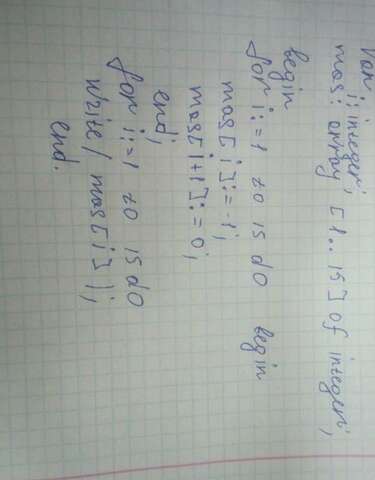 Var i: integer;
mas: array [1..15] of integer;
begin
for i:=1 to 15 do begin
mas[i]:=-1;
mas[i+1]:=0;
end;
for i:=1 to 15 do
write( mas[i]);
end.